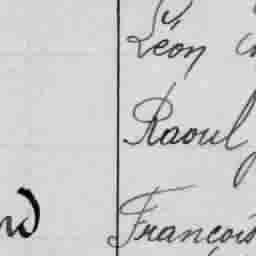 Léon
Raoul
François